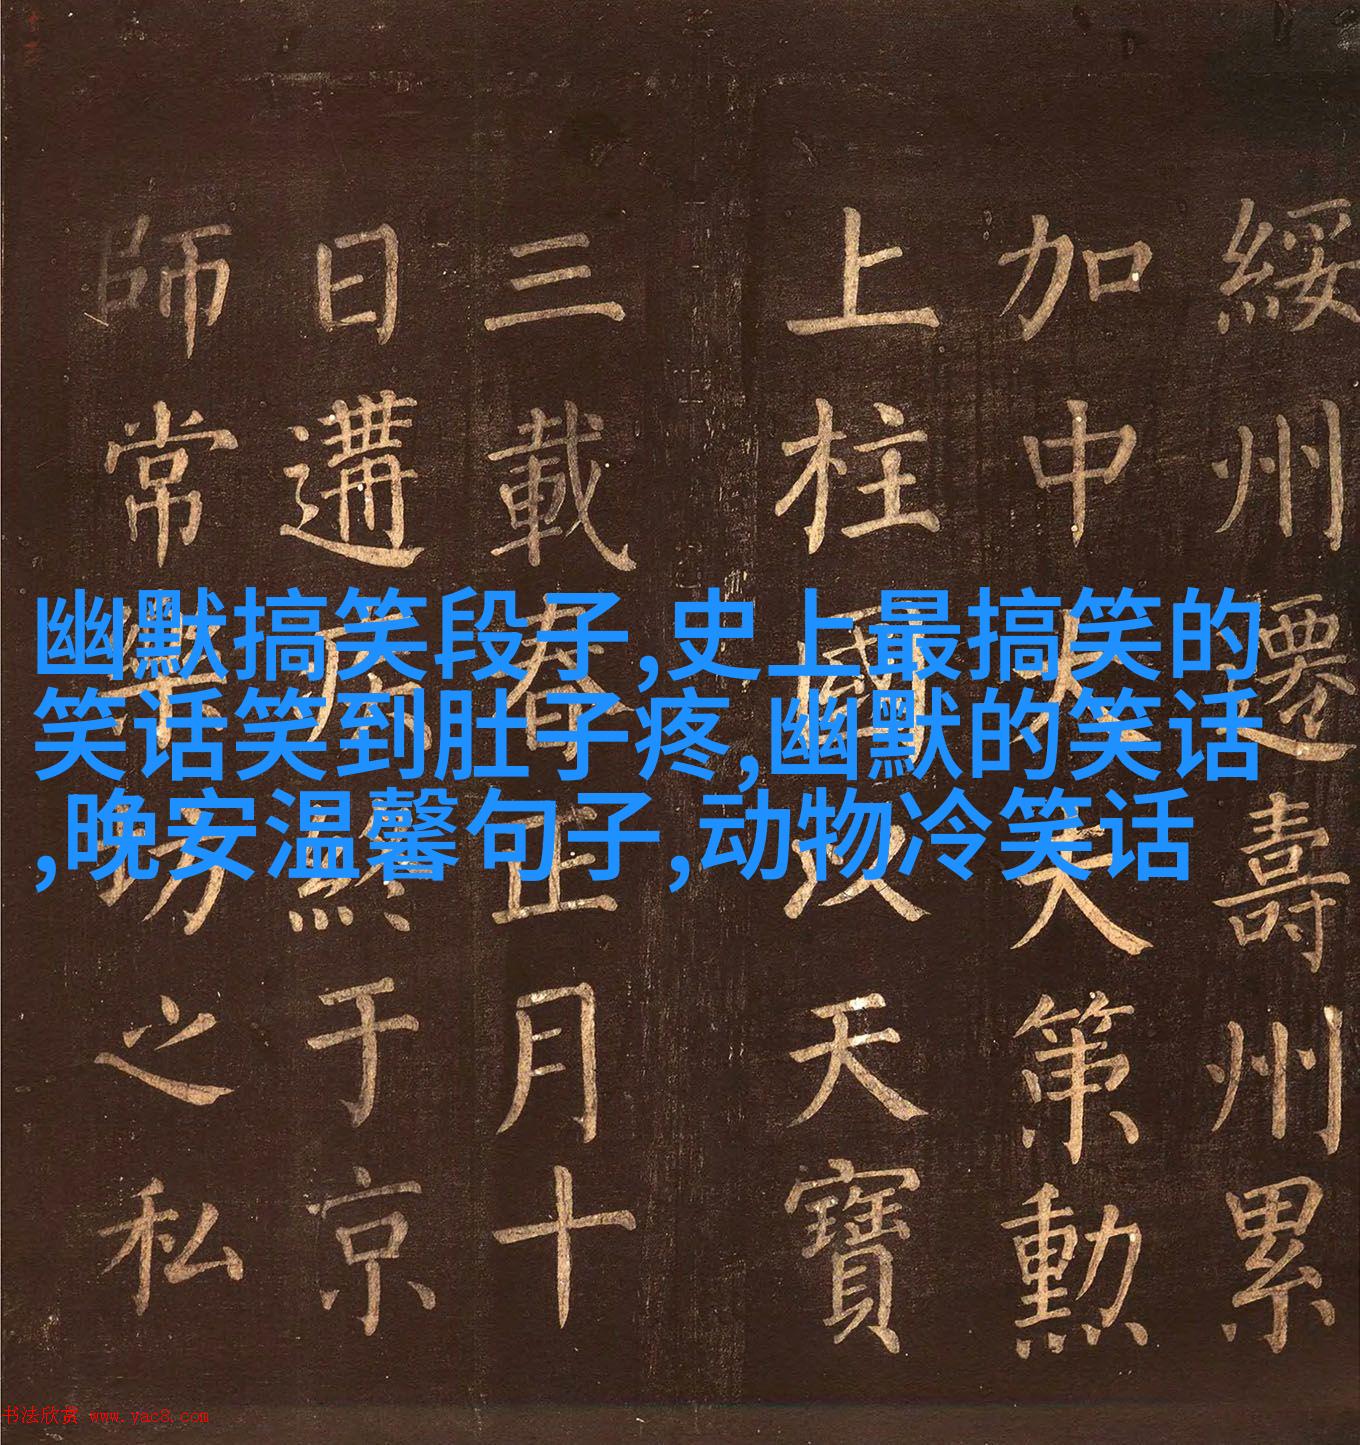 綏州遷壽州累
加中大夫第勳
上柱國以天寶
三載春正月十
日遘疾終于京
師常樂坊之私
幽默搞笑段子,史上最搞笑的
笑话笑到肚子疼,幽默的笑话
,晚安温馨句子,动物冷笑话
书法欣赏 www.yac8.com